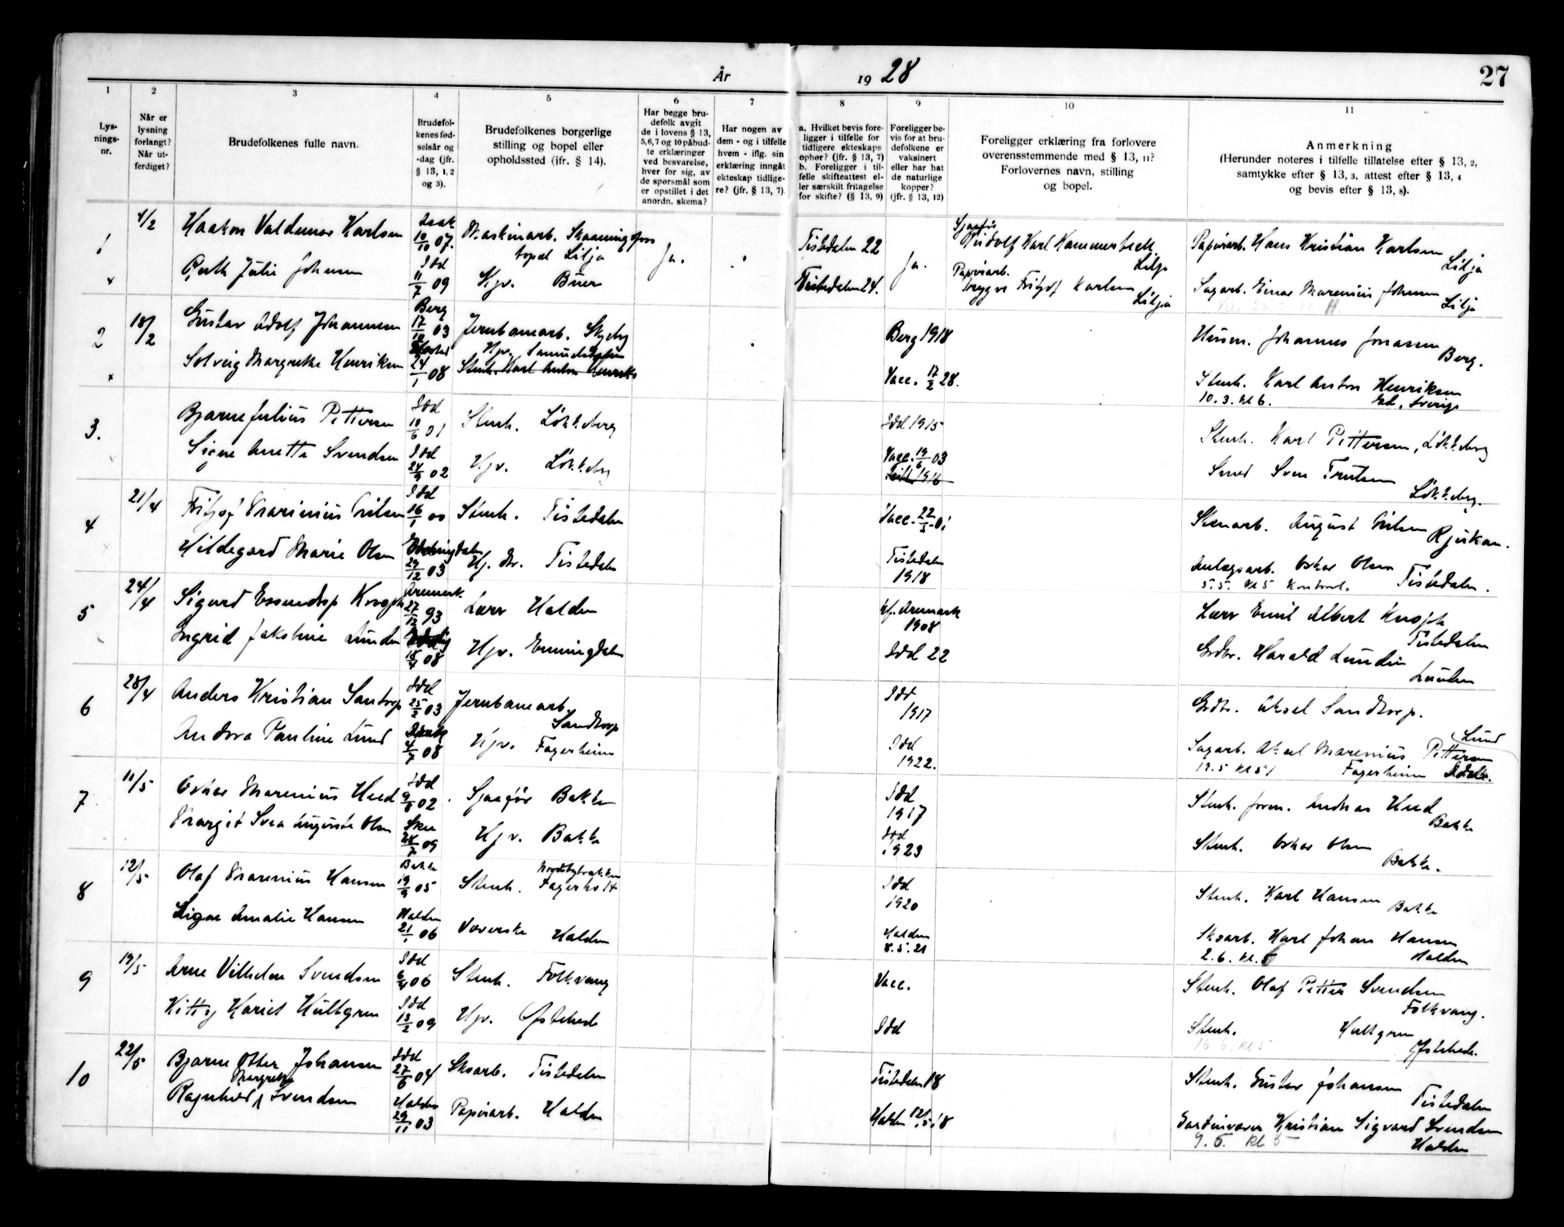 År 1928
27
1
2
3
4
5
6
7
8
9
10
11
Lys-
nings-
nr.
Når er
lysning
forlangt?
Når ut-
ferdiget?
Brudefolkenes fulle navn.
Brudefol-
kenes fød-
selsår og
-dag (jfr.
§ 13, 1, 2
og 3).
Brudefolkenes borgerlige
stilling og bopel eller
opholdssted (ifr. § 14).
Har begge bru-
defolk avgit
de i lovens § 13,
5,6,7 og 10 påbud-
te erklæringer
ved besvarelse,
hver for sig, av
de spørsmål som
er opstillet i det
anordn. skema?
Har nogen av
dem - og i tilfelle
hvem - iflg. sin
erklæring inngått
ekteskap tidlige-
re? (jfr. § 13, 7).
a. Hvilket bevis fore-
ligger i tilfelle for
tidligere ekteskaps
ophør? (jfr. § 13, 7)
b. Foreligger i til-
felle skifteattest el-
ler særskilt fritagelse
for skifte? (§ 13, 9)
Foreligger be-
vis for at bru-
defolkene er
vaksinert
eller har hat
de naturlige
kopper?
(jfr. § 13, 12)
Foreligger erklæring fra forlovere
overensstemmende med § 13, 11?
Forlovernes navn, stilling
og bopel.
Anmerkning
(Herunder noteres i tilfelle tillatelse efter § 13, 2,
samtykke efter § 13, 3, attest efter § 13, 4
og bevis efter § 13, 8).
1
Haakon Valdemar Karlsen
10/10 07.
Maskinarb.
bopel Lilja
Ja.
Tistedalen 22
Ja.
Karl
Lilja
Papirarb. Hans Kristian Karlsen
Lilja
Julie Johansen
Idd
11/7 09
Hjv. Buer
Tistedalen 24.
Papirarb.
Trygve Fritjof Karlsen
Lilja
Sagarb. Einar Marenius Johansen
Lilja
2
18/2
Gustav Adolf Johannesen
Berg
17/10 03
Jernbanearb. Skjeberg
Berg 1918
Johannes Jonassen
Berg.
Solveig Margrethe Henriksen
24/1 08
Hjv.
Stenh. Karl Anton Henriks
Vacc. 17/2 28.
Stenh. Karl Anton Henriksen
10.3. kl 6. Ed, Sverige
3.
Bjarne Julius Pettersen
Idd
10/6 01
Stenh. Løkkeberg
Idd 1915
Stenh. Karl Pettersen, Løkkeberg
Signe Anette Svendsen
Idd
24/9 02
Hjv. Løkkeberg
Vacc. 19/6 03
Idd 1916
Smed Sven
Løkkeberg.
4
21/4
Fritjof Marinius Nilsen
Idd
16/1 00
Stenh. Tistedalen
Vacc. 22/5 01
Stenarb. August Nilsen
Rjukan.
Hildegard Marie Olsen
29/12 03
Tistedalen
Tistedalen
1918
Anlægsarb. Oskar Olsen
5.5. kl 5 Kontort. Tistedalen.
5
24/4
Sigurd Knoph
Aremark
27/12 93
Lærer Halden
Aremark
1908
Lærer Emil Albert Knoph
Tistedalen
Ingrid Jakobine Lunden
18/4 08
Hjv. Enningdalen
Idd 22
Grdbr. Harald Lunden
Lunden
6
28/4
Anders Kristian Santorp
Idd
25/2 03
Jernbanearb.
Sandtorp
Idd
1917
Grdbr. Aksel Sandtorp.
Andora Pauline Lund
4/7 08
Hjv. Fagerheim
Idd
1922.
Lund
Sagarb. Aksel Marenius Pettersen
19.5 kl 5 Fagerheim
7
11/5
Oskar Marenius Hued
Idd
02
Sjaafør Bakke
Idd
1917
Stenh. form. Andreas Hued
Bakke
Margit Svea Auguste Olsen
28/7 09
Hjv. Bakke
Idd
1923
Stenh. Oskar Olsen
Bakke.
8
12/5
Olaf Marenius Hansen
Bakke
19/9 05
Stenh. Fagerholt
Idd
1920
Stenh. Karl Hansen
Bakke
Signe Amalie Hansen
Halden
21/1 06
Væverske Halden
Halden
8.5.21
Skoarb. Karl Johan Hansen
2.6. kl. 5 Halden
9
19/5
Arne Vilhelm Svendsen
Idd
06
Stenh. Folkvang
Vacc.
Stenh. Olaf Petter Svendsen
Folkvang.
Kitty Hariet Hultgren
Idd
13/2 09
Hjv. Østehede
Idd
Stenh. Hultgren
16 6. kl 5 Østehede.
10
22/5
Bjarne Otter Johansen
Idd
27/6 04
Skoarb. Tistedalen
Tistedalen 18
Stenh. Gustav Johansen
Tistedalen
Ragnhild Margrethe Svendsen
Halden
29/11 03
Papirarb. Halden
Halden
Gardinvæver Kristian Sigvard Svendsen
9.6. kl 5 Halden